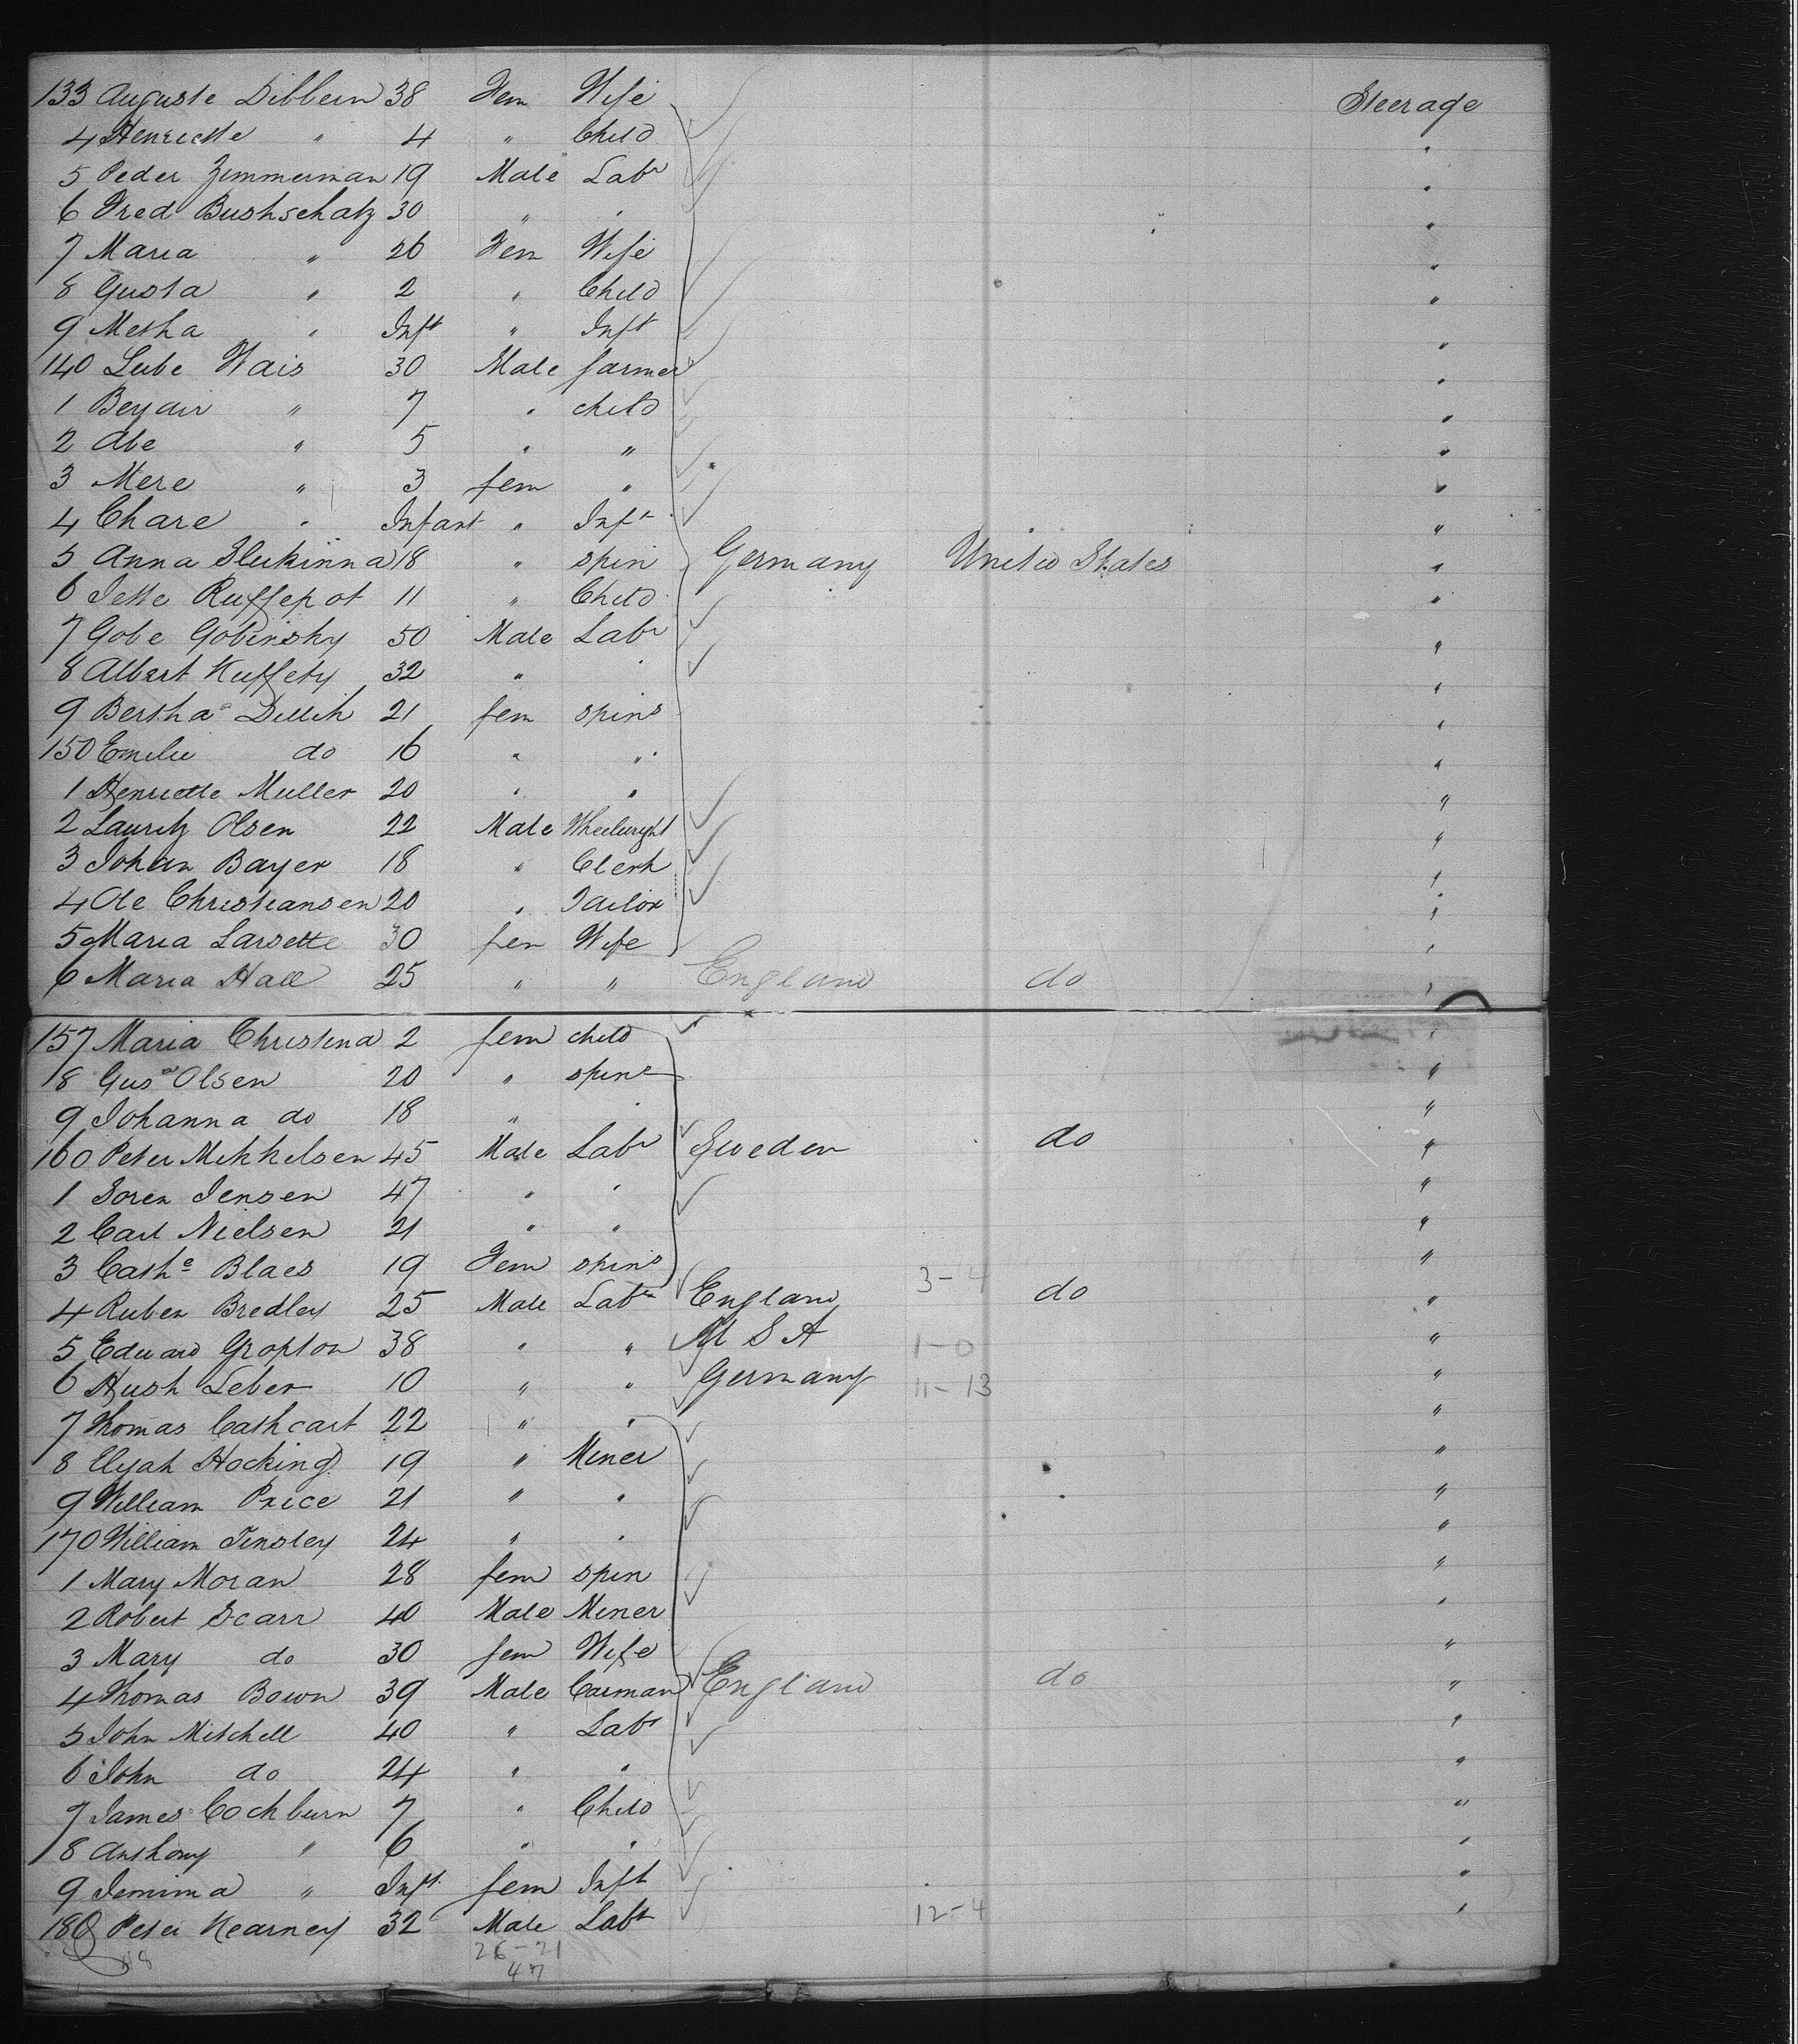 133 Auguste Dibbern 38 Fem Wife Steerage
4 Henriette " 4 " Child "
5 Peder Zimmerman 19 Male Labr "
6 Fred Bushschatz 30 " " "
7 Maria " 26 Fem Wife "
8 Gusta " 2 " Child "
9 Metha " Inft " Inft "
140 Leibe Wais 30 Male farmer "
1 Beyair " 7 " child "
2 Abe " 5 " " "
3 Mere " 3 fem " "
4 Chare " Infant " Inft "
5 Anna Slukinna 18 " spin Germany United States "
6 Jette Ruffepot 11 " Child "
7 Gobe Gobinsky 50 Male Labr "
8 Albert Kuffety 32 " " "
9 Bertha Dillih 21 fem spins "
150 Emilie do 16 " " "
1 Henriette Muller 20 " " "
2 Lauritz Olsen 22 Male Wheelwright "
3 Johan Bayer 18 " Clerk "
4 Ole Christiansen 20 " Tailor "
5 Maria Larsette 30 fem Wife "
6 Maria Hall 25 " " England do "
157 Maria Christina 2 fem child "
8 Gusa Olsen 20 " spins "
9 Johanna do 18 " " "
160 Peter Mikkelsen 45 Male Labr Sweden do "
1 Soren Jensen 47 " " "
2 Carl Nielsen 21 " " "
3 Cathe Blaes 19 Fem spins "
4 Ruben Bredley 25 Male Labr England 3-4 do "
5 Edward Gropton 38 " " U S A 1-0 "
6 Hush Leber 10 " " Germany 11-13 "
7 Thomas Cathcart 22 " " "
8 Elijah Hocking 19 " Miner "
9 William Price 21 " " "
170 William Tinsley 24 " " "
1 Mary Moran 28 fem spin "
2 Robert Scarr 40 Male Miner "
3 Mary do 30 fem Wife "
4 Thomas Bown 39 Male Carman England do "
5 John Mitchell 40 " Labr "
6 John do 24 " " "
7 James Cockburn 7 " Child "
8 Anthony " 6 " " "
9 Jemima " Inft fem Inft "
180 Peter Kearney 32 Male Labr 12-4 "
26-21
47